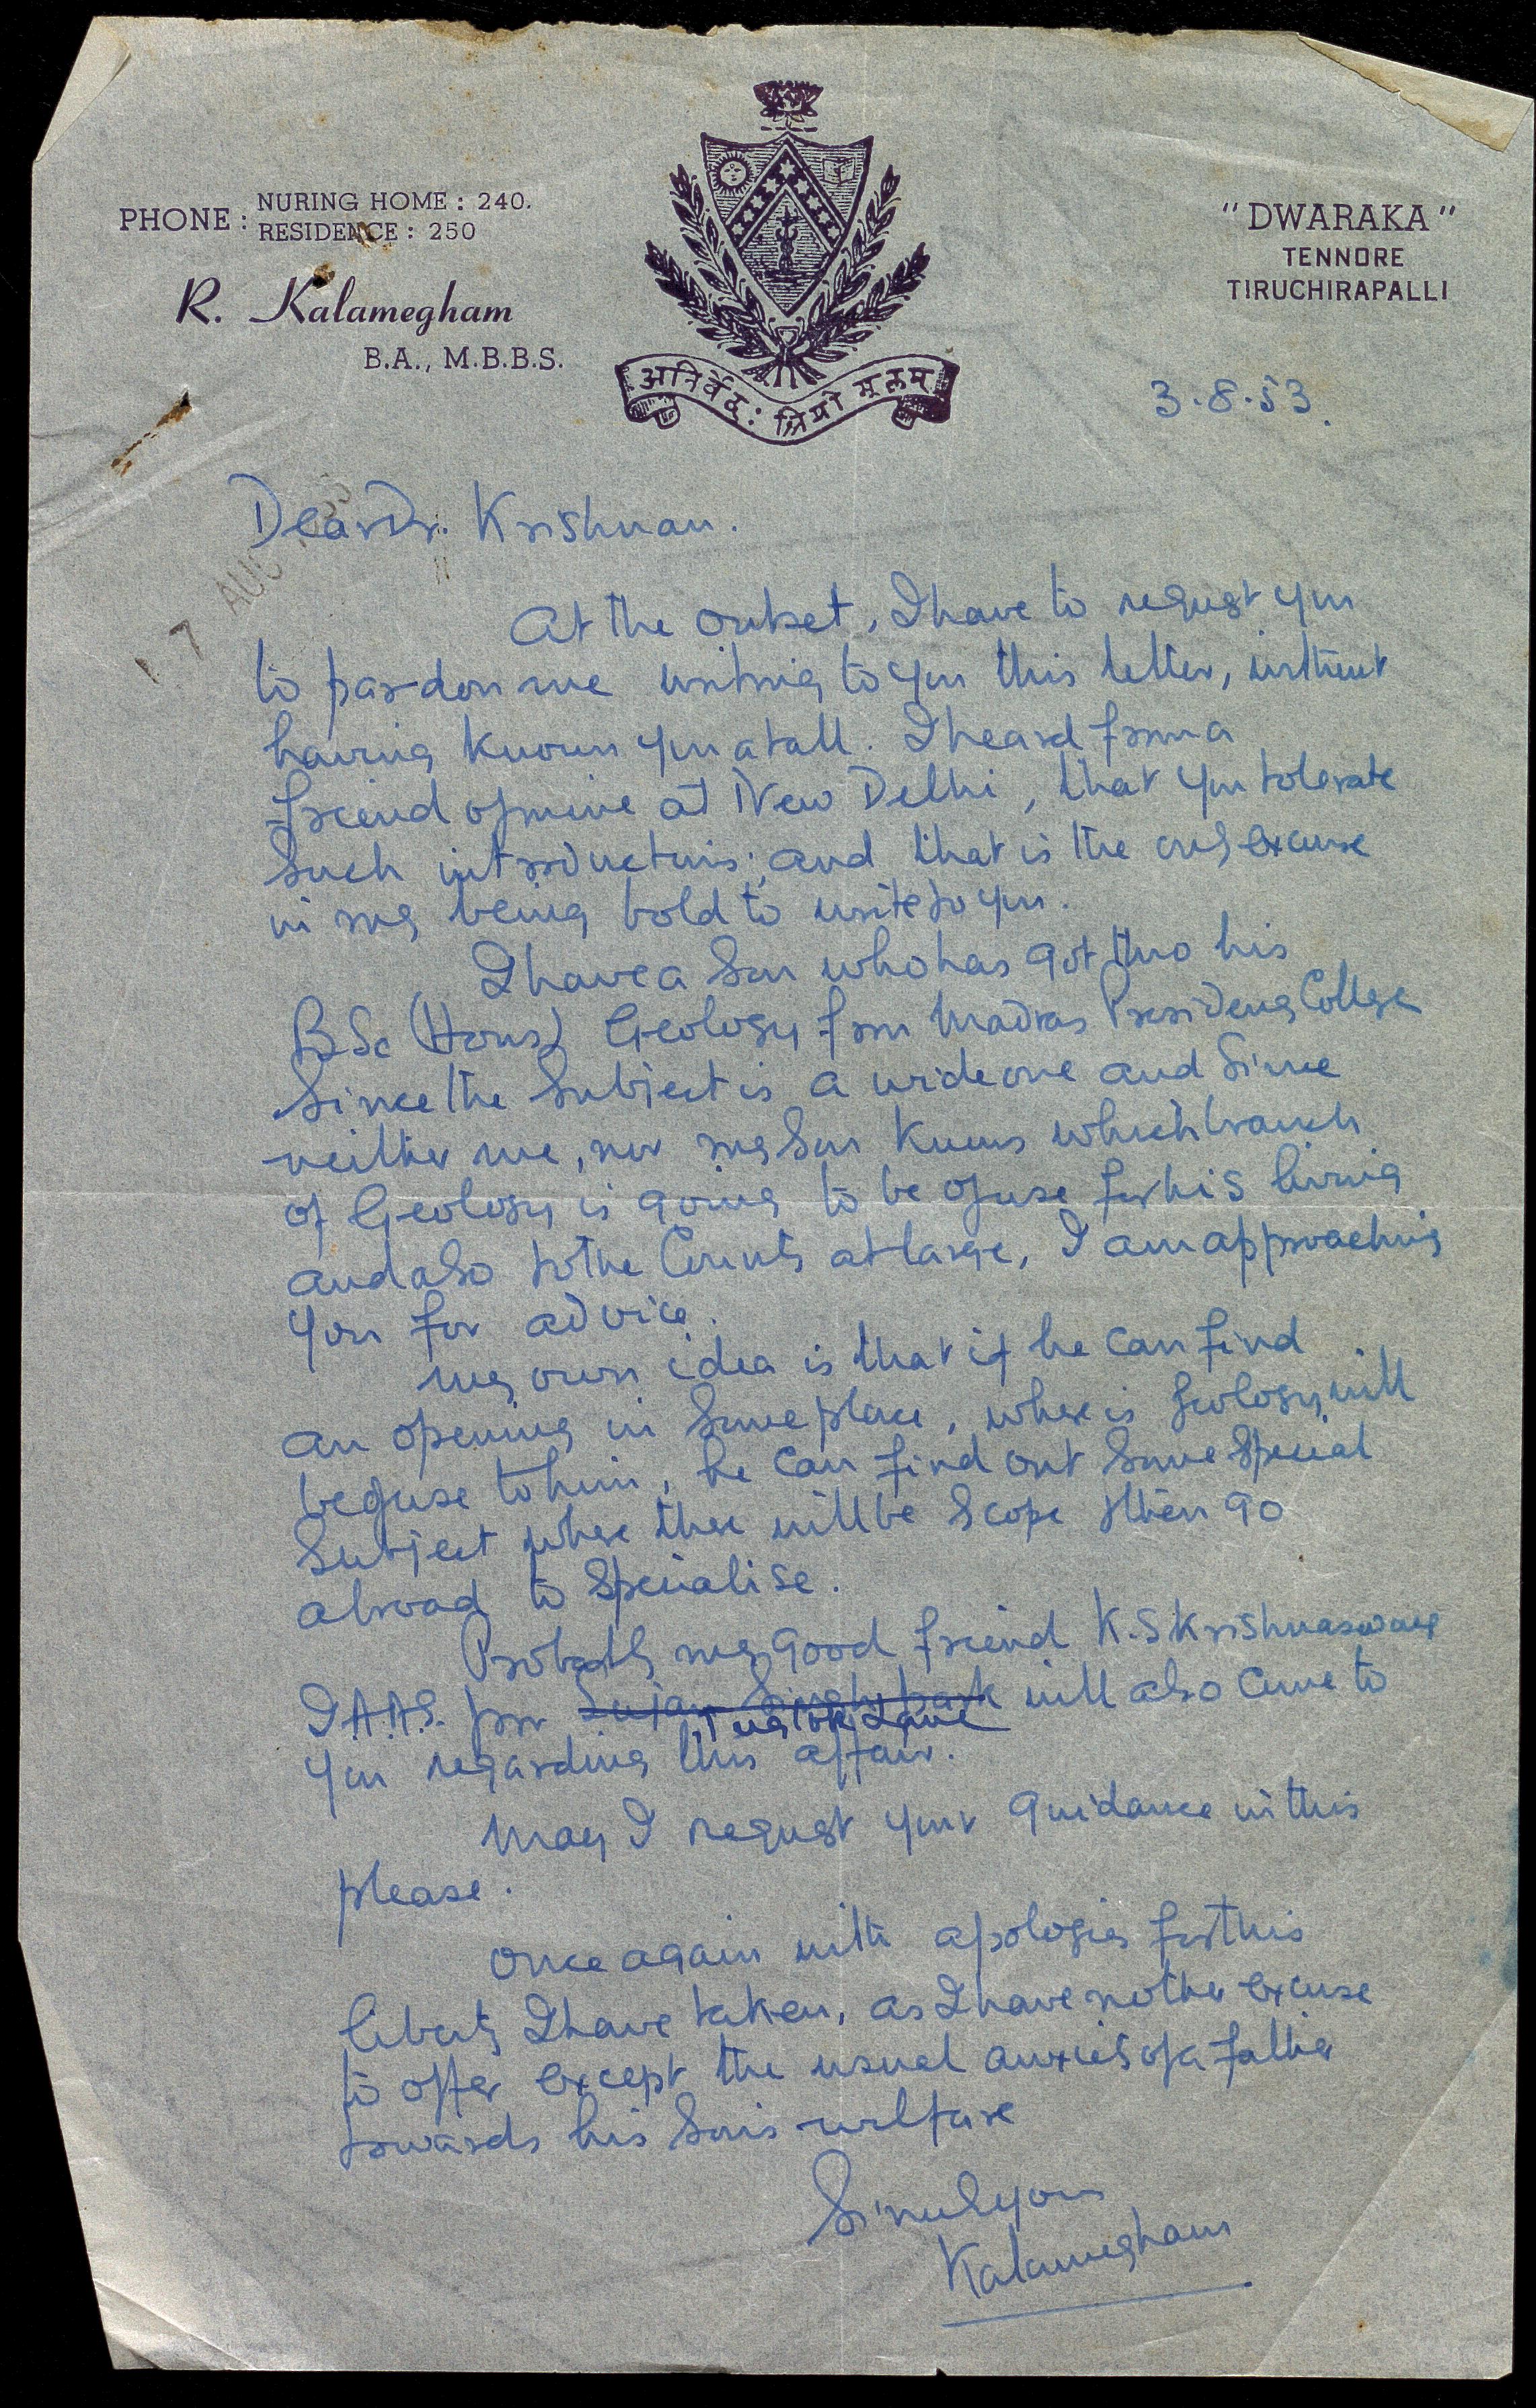 PHONE : NURING HOME : 240.
RESIDENCE : 250
R. Kalamegham
B.A., M.B.B.S.
अनिर्वेदः श्रियो मूलम्
"DWARAKA"
TENNORE
TIRUCHIRAPALLI
3.8.53.
17 AUG 1953
Dear Dr. Krishnan.
At the outset, I have to request you
to pardon me writing to you this letter, without
having known you at all. I heard from a
friend of mine at New Delhi, that you tolerate
such introductions; and that is the only excuse
in my being bold to write to you.
I have a son who has got thro his
B.Sc (Hons) Geology from Madras Presidency College
Since the subject is a wide one and since
neither me, nor my son knows which branch
of Geology is going to be of use for his living
and also to the County at large, I am approaching
you for advice.
My own idea is that if he can find
an opening in some place, where is Geology will
be of use to him, he can find out some special
subject where there will be scope then go
abroad to specialise.
Probably my good friend K.S Krishnaswamy
I.A.A.S. from Sujan Singh park will also come to
Tuglak Lane
you regarding this affair.
May I request your guidance in this
please.
Once again with apologies for this
liberty I have taken, as I have no other excuse
to offer except the usual anxiety of a father
towards his son's welfare
Sincely yours
Kalamegham